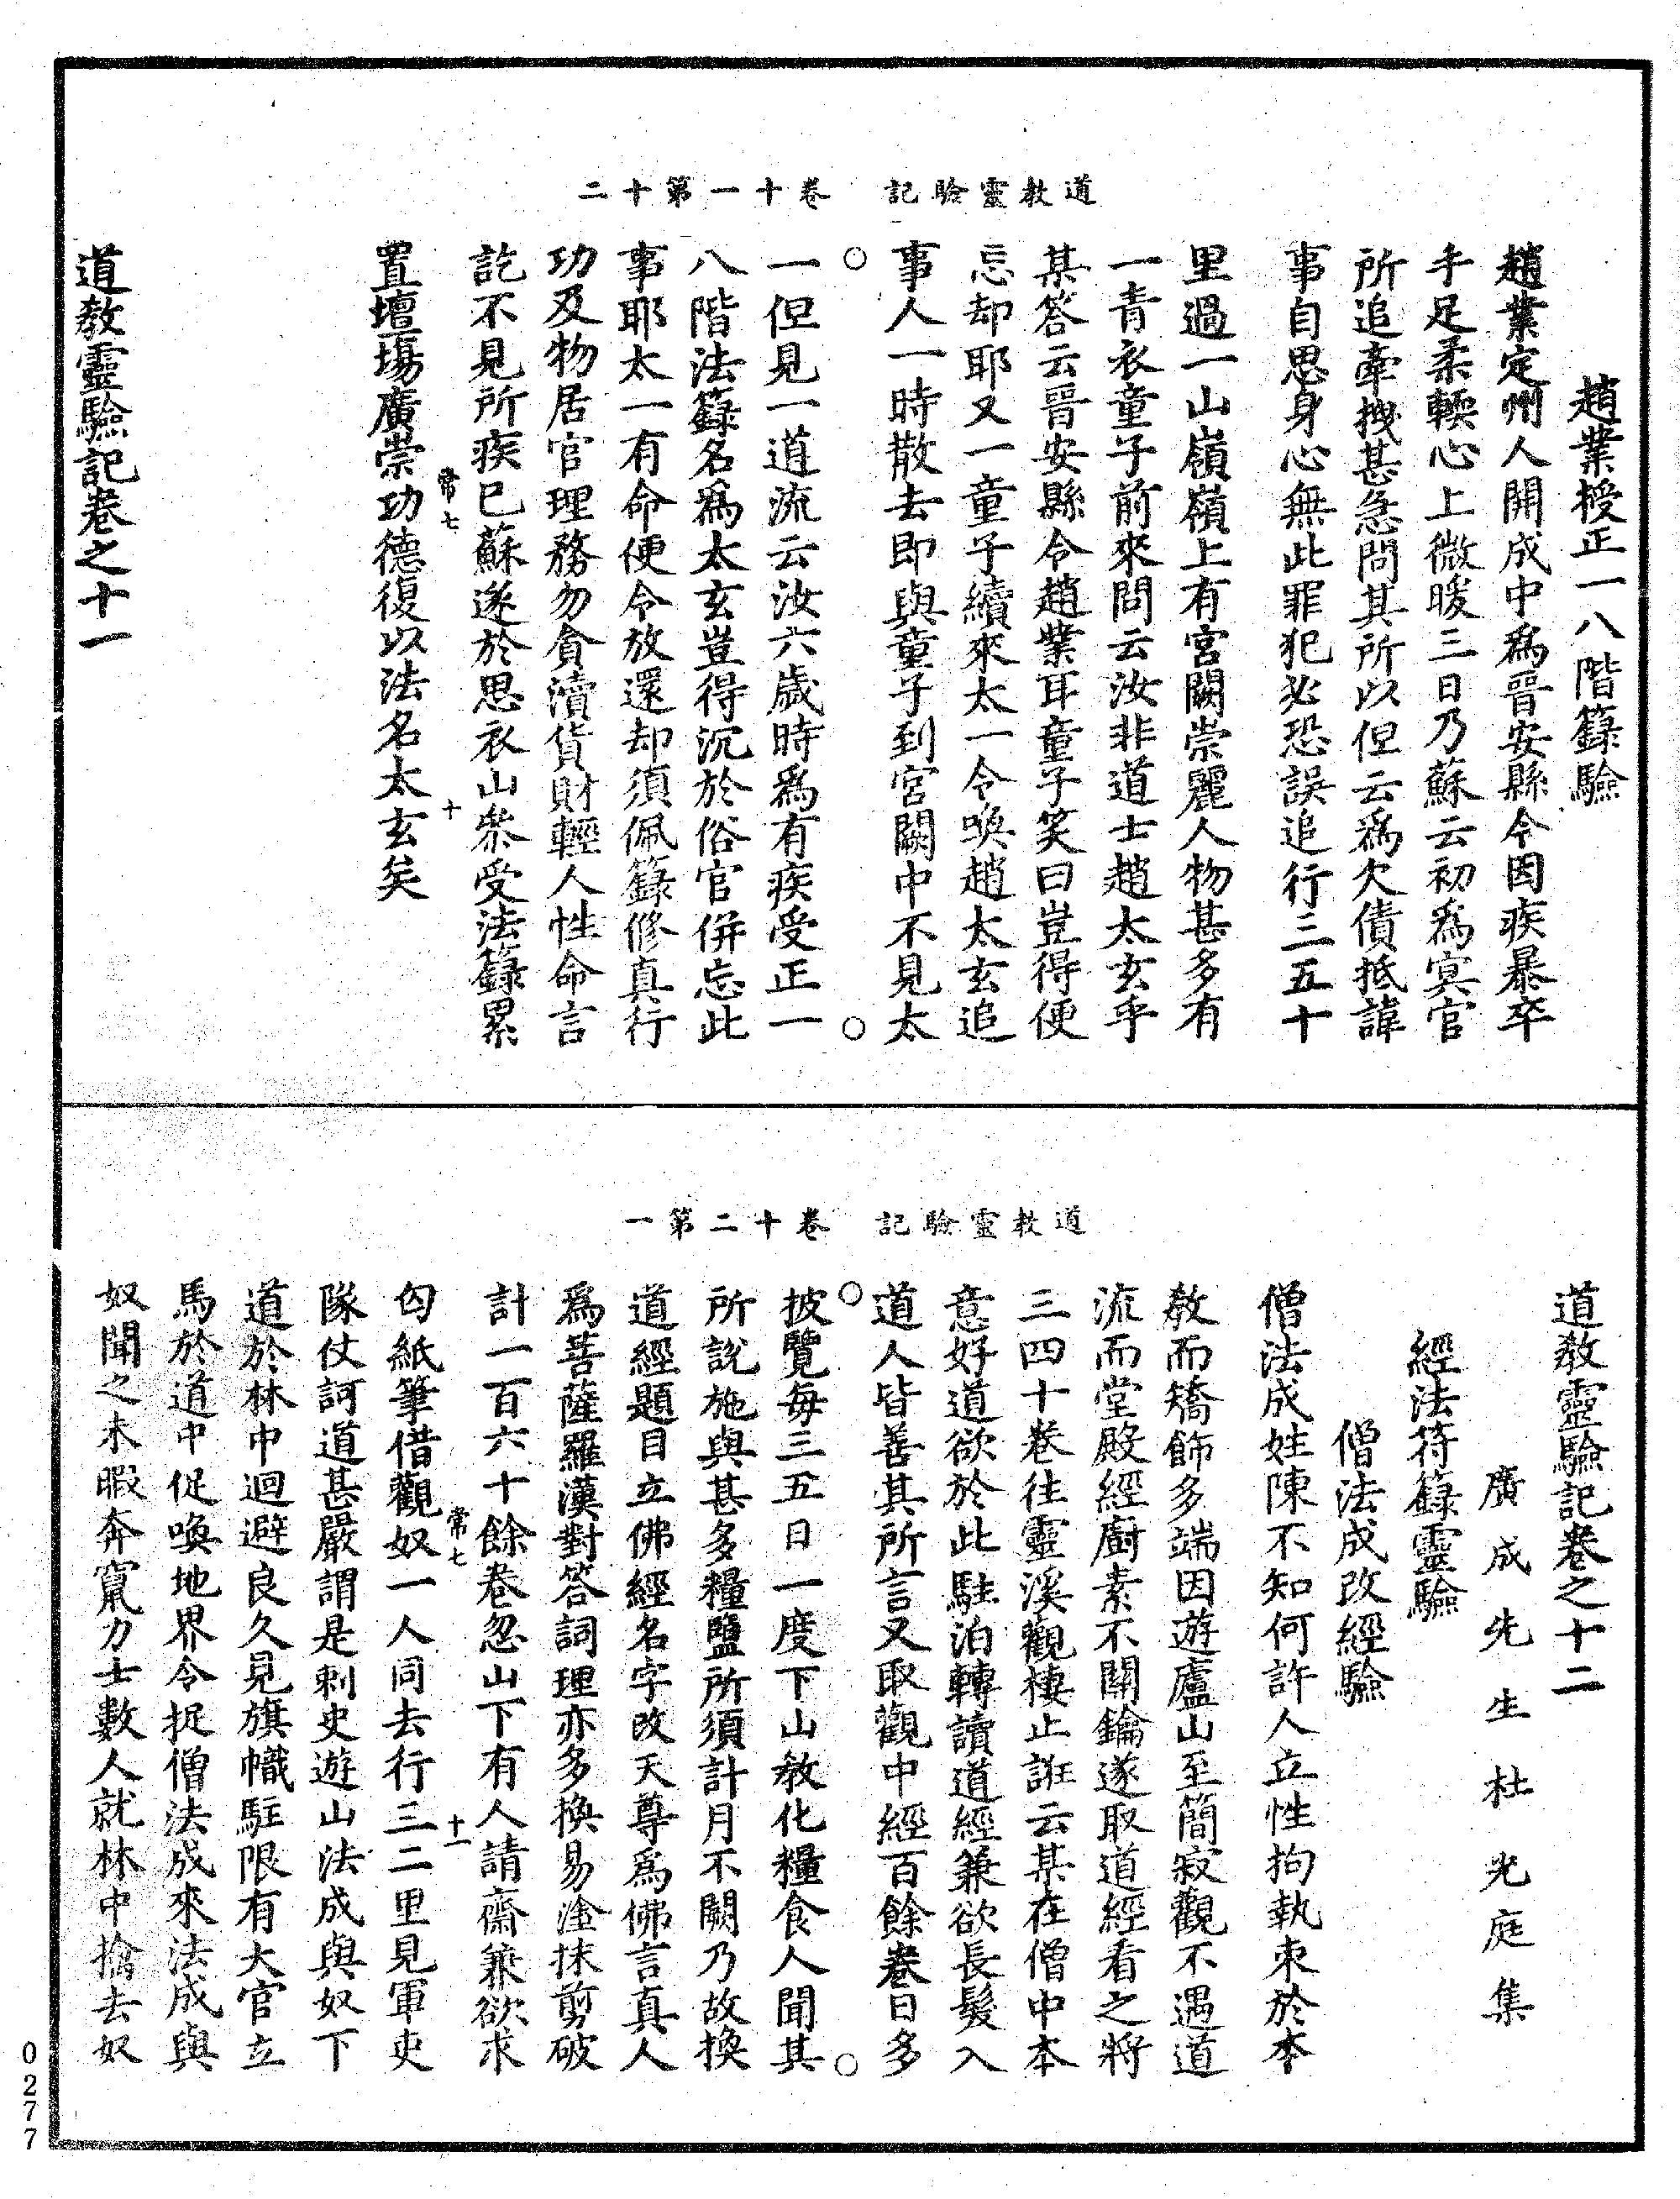 道教靈驗記　卷十一第十二
趙業授正一八階籙驗
趙業定州人開成中爲晉安縣令因疾暴卒
手足柔輭心上微暖三日乃蘇云初爲冥官
所追牽拽甚急問其所以但云爲欠債抵諱
事自思身心無此罪犯必恐誤追行三五十
里過一山嶺嶺上有宮闕崇麗人物甚多有
一青衣童子前來問云汝非道士趙太玄乎
某答云晉安縣令趙業耳童子笑曰豈得便
忘却耶又一童子續來太一令喚趙太玄追
事人一時散去即與童子到宮闕中不見太
一但見一道流云汝六歲時爲有疾受正一
八階法籙名爲太玄豈得沉於俗官併忘此
事耶太一有命便令放還却須佩籙修真行
功及物居官理務勿貪瀆貨財輕人性命言
訖不見所疾已蘇遂於思衣山衆受法籙累
常七　十
置壇場廣崇功德復以法名太玄矣
道教靈驗記卷之十一
道教靈驗記　卷十二第一
道教靈驗記卷之十二
廣成先生杜光庭集
經法符籙靈驗
僧法成改經驗
僧法成姓陳不知何許人立性拘執束於本
教而矯飾多端因遊廬山至簡寂觀不遇道
流而堂殿經廚素不關鑰遂取道經看之將
三四十卷往靈溪觀棲止誑云某在僧中本
意好道欲於此駐泊轉讀道經兼欲長髮入
道人皆善其所言又取觀中經百餘卷日多
披覽每三五日一度下山教化糧食人聞其
所說施與甚多糧鹽所須計月不闕乃故換
道經題目立佛經名字改天尊爲佛言真人
爲菩薩羅漢對答詞理亦多換易塗抹剪破
計一百六十餘卷忽山下有人請齋兼欲求
常七　十一
匃紙筆借觀奴一人同去行三二里見軍吏
隊仗訶道甚嚴謂是刺史遊山法成與奴下
道於林中迴避良久見旗幟駐限有大官立
馬於道中促喚地界令捉僧法成來法成與
奴聞之未暇奔竄力士數人就林中擒去奴
0277